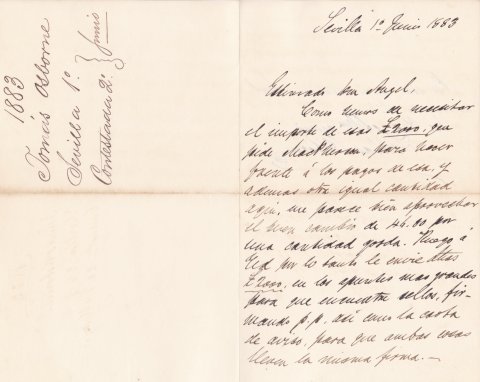 1883
Tomás Osborne
Sevilla 1º
Contestada 2º } Junio
Sevilla 1º Junio 1883
Estimado Don Angel,
Como hemos de necesitar
el importe de esas £2000, que
pide MacPherson, para hacer
frente á los pagos de esa, y
ademas otra igual cantidad
aqui, me parece bien aprovechar
el buen cambio de 46.80 por
una cantidad gorda. Ruego á
Ud por lo tanto le envie otras
£2000, en los apuntes mas grandes
para que encuentre sellos, fir-
mando p.p. asi como la carta
de aviso, para que ambas cosas
lleven la misma firma.—